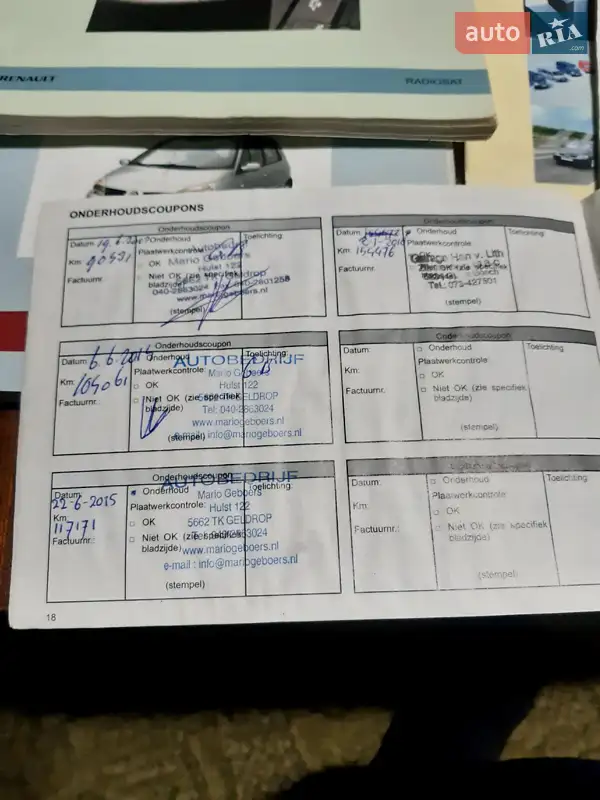 auto RIA .com
RENAULT
RADIOSAT
ONDERHOUDSCOUPONS
Onderhoudscoupon
Datum: 19.6.
Km: 9053
Factuurnr.:
Onderhoud
Plaatwerkcontrole
OK
Niet OK (zie specifiek bladzijde)
Toelichting:
Autobedrijf
Mario Geboers
Hulst 122
040-2863024
www.mariogeboers.nl
(stempel)
Onderhoudscoupon
Datum:
Km: 154476
Factuurnr.:
Onderhoud
Plaatwerkcontrole:
OK
Toelichting:
Han v. Lith
Tel.: 073-427501
(stempel)
Onderhoudscoupon
Datum: 6.6.2014
Km: 105061
Factuurnr.:
Onderhoud
Plaatwerkcontrole:
OK
Niet OK (zie specifiek
bladzijde)
Toelichting:
AUTOBEDRIJF
Mario Geboers
Hulst 122
GELDROP
Tel: 040-2863024
www.mariogeboers.nl
e-mail: info@mariogeboers.nl
(stempel)
Onderhoudscoupon
Datum:
Km:
Factuurnr.:
Onderhoud
Plaatwerkcontrole:
OK
Niet OK (zie specifiek
bladzijde)
Toelichting:
(stempel)
Onderhoudscoupon
Datum:
22-6-2015
Km:
117171
Factuurnr.:
Onderhoud
Plaatwerkcontrole:
OK
Niet OK (zie specifiek
bladzijde)
Toelichting:
AUTOBEDRIJF
Mario Geboers
Hulst 122
5662 TK GELDROP
www.mariogeboers.nl
e-mail : info@mariogeboers.nl
(stempel)
Datum:
Km:
Factuurnr.:
Onderhoud
Plaatwerkcontrole:
OK
Niet OK (zie specifiek
bladzijde)
Toelichting:
(stempel)
18